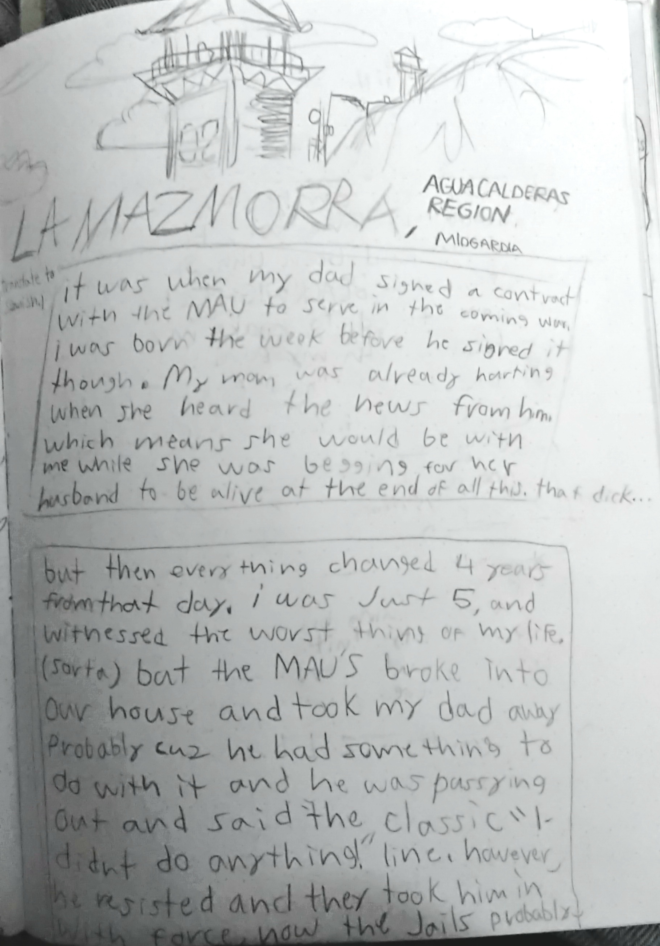 02
LA MAZMORRA,
AGUACALDERAS
REGION
MIDGARDIA
translate to
it was when my dad signed a contract
with the MAU to serve in the coming war.
i was born the week before he signed it
though. My mom was already hurting
when she heard the news from him,
which means she would be with
me while she was begging for her
husband to be alive at the end of all this. that dick...
but then everything changed 4 years
from that day. i was Just 5, and
witnessed the worst thing of my life.
(sorta) but the MAU'S broke into
our house and took my dad away
Probably cuz he had something to
do with it and he was pussying
out and said the classic "I-
didnt do anything!" line. however,
he resisted and they took him in
with force, now the Jails probably